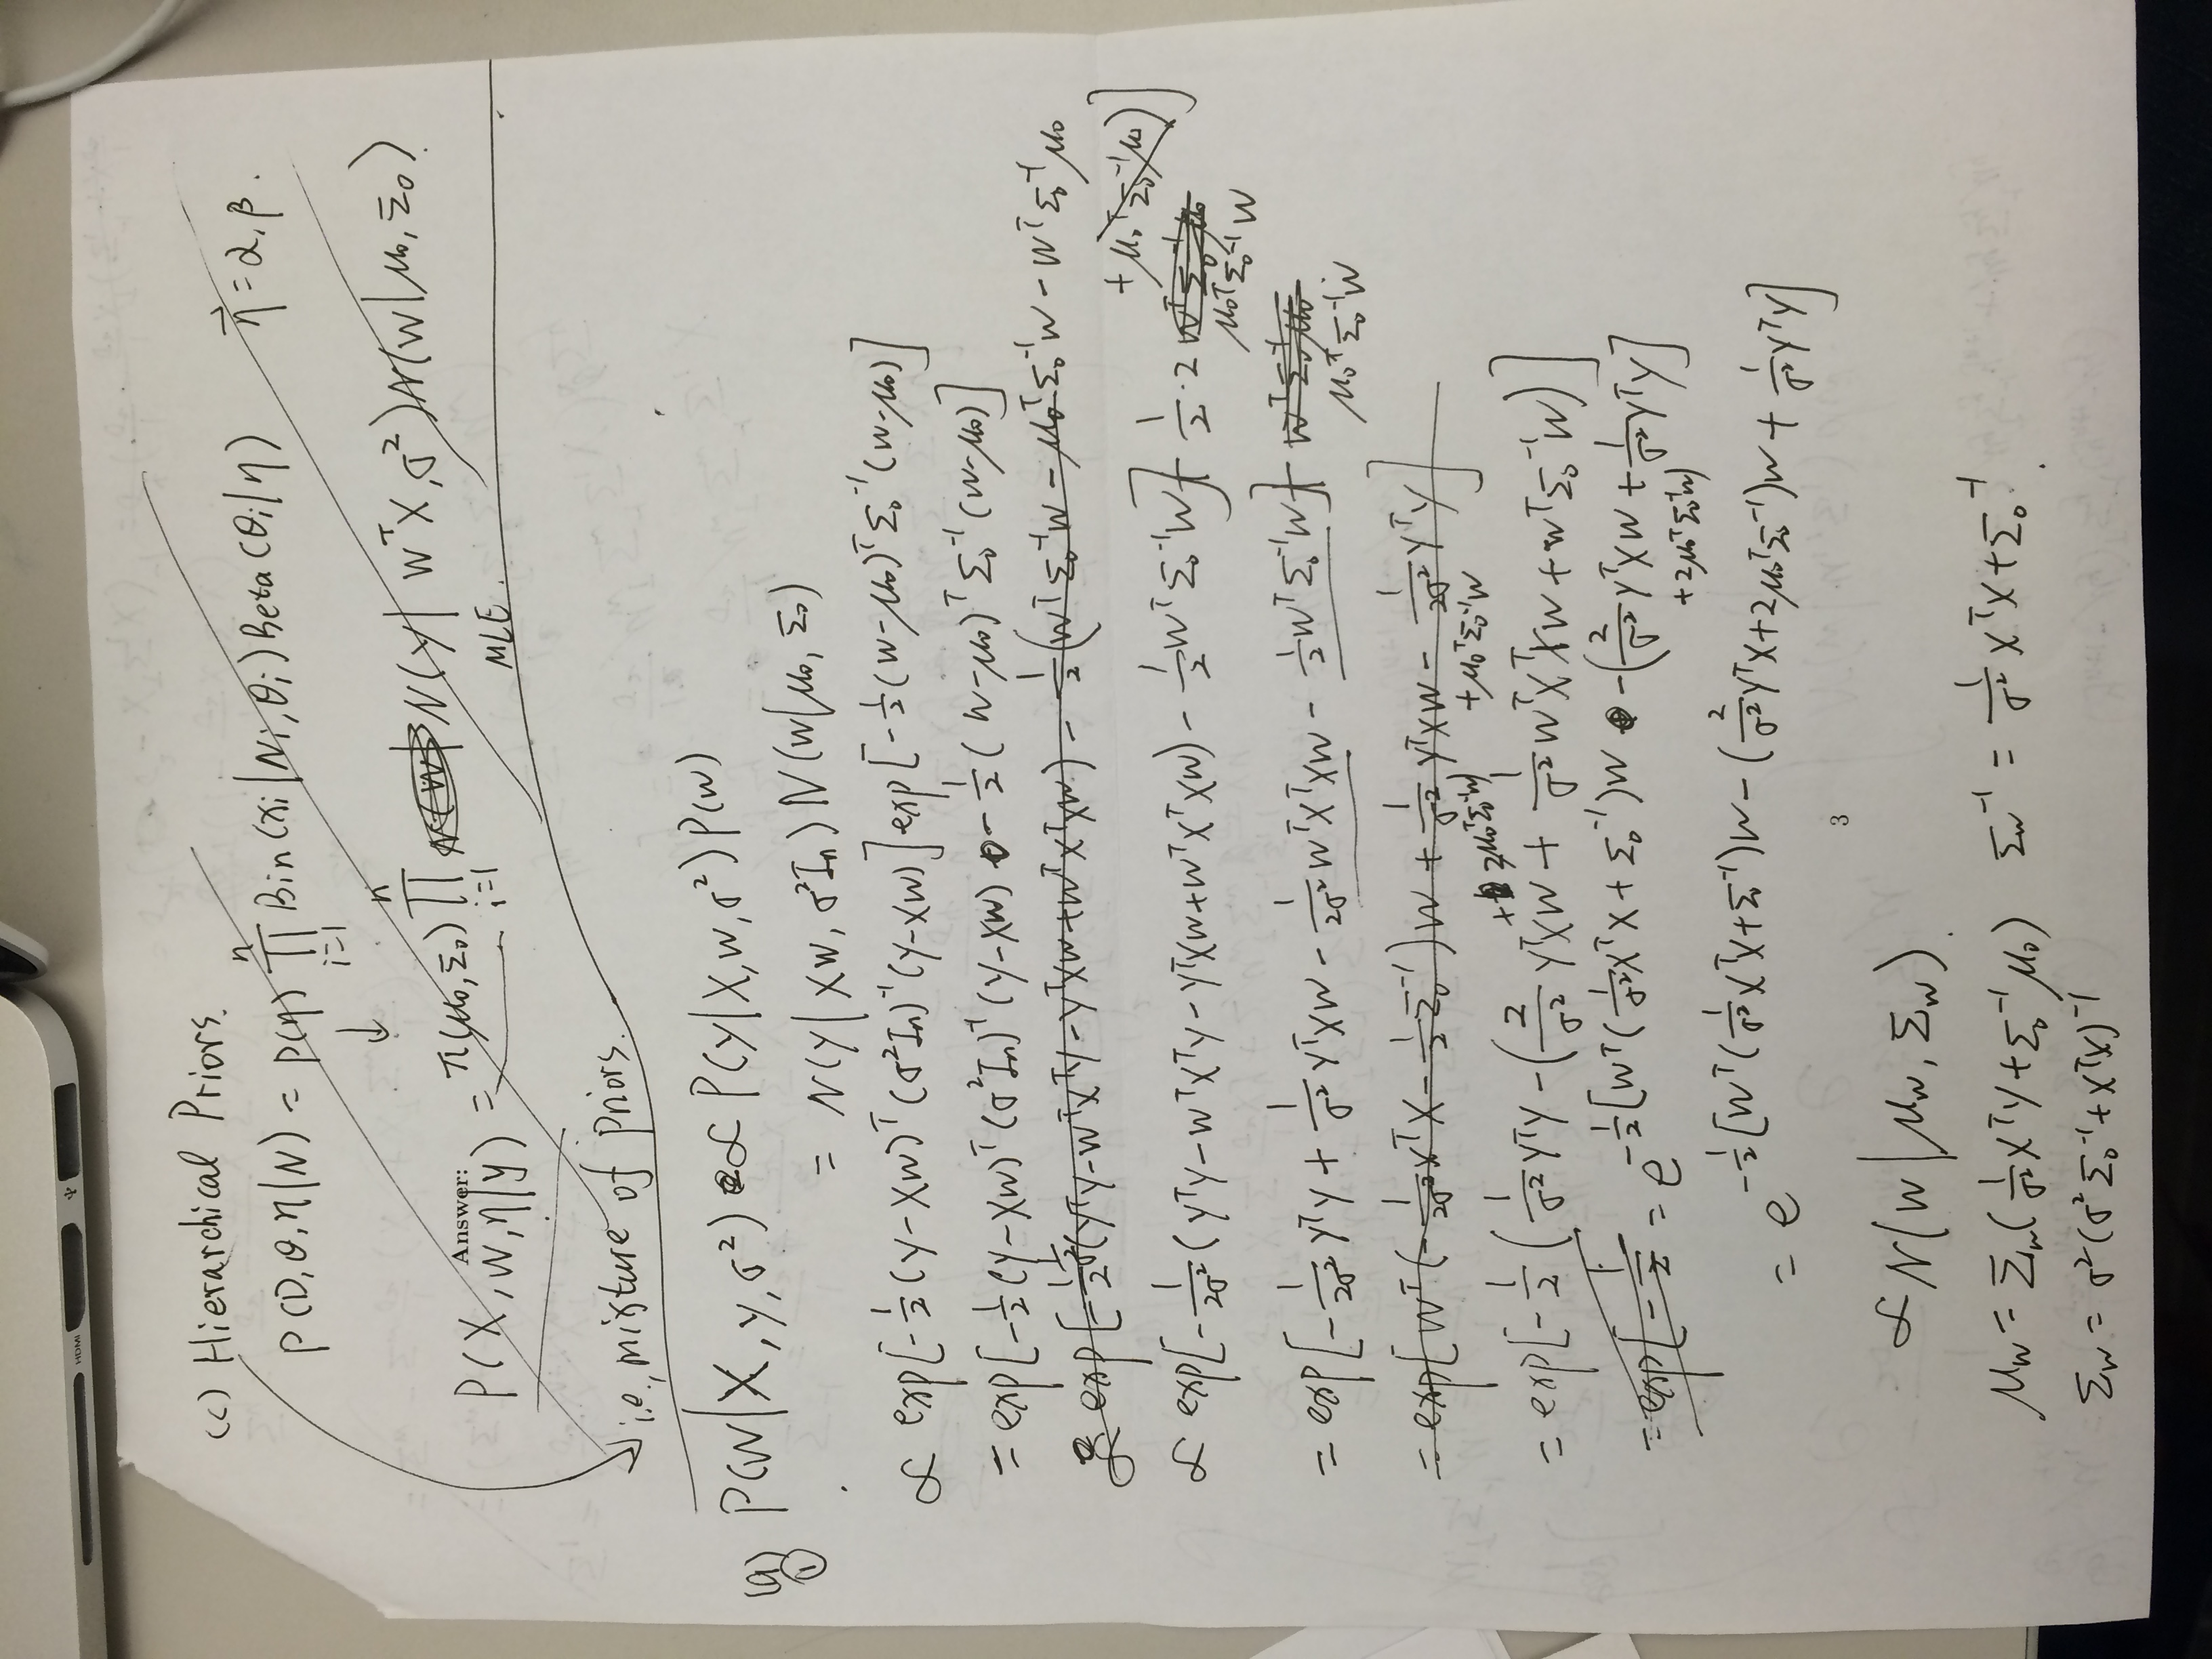 HDMI
(c) Hierarchical Priors.
P(D,θ,η|N) = p(η) ∏_{i=1}^{n} Bin(xi|Ni,θi)Beta(θi|η) η⃗ = α,β.
↓
Answer:
P(X,w,η|y) = π(μ₀,Σ₀) ∏_{i=1}^{n} N(w| N(y| wᵀX,σ²)N(w|μ₀,Σ₀)
MLE.
i.e., mixture of priors.
(a) ① P(w|X,y,σ²) ∝ P(y|X,w,σ²)P(w)
= N(y|Xw, σ²In)N(w|μ₀,Σ₀)
∝ exp[-½(y-Xw)ᵀ(σ²In)⁻¹(y-Xw)]exp[-½(w-μ₀)ᵀΣ₀⁻¹(w-μ₀)]
= exp[-½(y-Xw)ᵀ(σ²In)⁻¹(y-Xw) - ½(w-μ₀)ᵀΣ₀⁻¹(w-μ₀)]
∝ exp[-1/2σ²(yᵀy-wᵀXᵀy-yᵀXw+wᵀXᵀXw) - ½(wᵀΣ₀⁻¹w - μ₀ᵀΣ₀⁻¹w - wᵀΣ₀⁻¹μ₀
+ μ₀ᵀΣ₀⁻¹μ₀)]
∝ exp[-1/2σ²(yᵀy-wᵀXᵀy-yᵀXw+wᵀXᵀXw) - ½wᵀΣ₀⁻¹w] + ½·2 wᵀΣ₀⁻¹μ₀
μ₀ᵀΣ₀⁻¹w
= exp[-1/2σ² yᵀy + 1/σ² yᵀXw - 1/2σ² wᵀXᵀXw - ½wᵀΣ₀⁻¹w] + wᵀΣ₀⁻¹μ₀
μ₀ᵀΣ₀⁻¹w
= exp[wᵀ(-1/2σ² XᵀX - ½Σ₀⁻¹)w + 1/σ² yᵀXw - 1/2σ² yᵀy]
+ 2μ₀ᵀΣ₀⁻¹w) + μ₀ᵀΣ₀⁻¹w
= exp[-½(1/σ² yᵀy - (2/σ² yᵀXw + 1/σ² wᵀXᵀXw + wᵀΣ₀⁻¹w)]
= exp[-½ = e^{-½[wᵀ(1/σ² XᵀX + Σ₀⁻¹)w - (2/σ² yᵀXw + 1/σ² yᵀy]}
+2μ₀ᵀΣ₀⁻¹w)
= e^{-½[wᵀ(1/σ² XᵀX+Σ₀⁻¹)w - (2/σ² yᵀX+2μ₀ᵀΣ₀⁻¹)w + 1/σ² yᵀy]}
3
∝ N(w|μw, Σw).
μw = Σw(1/σ² Xᵀy+Σ₀⁻¹μ₀) Σw⁻¹ = 1/σ² XᵀX+Σ₀⁻¹.
Σw = σ²(σ²Σ₀⁻¹+XᵀX)⁻¹